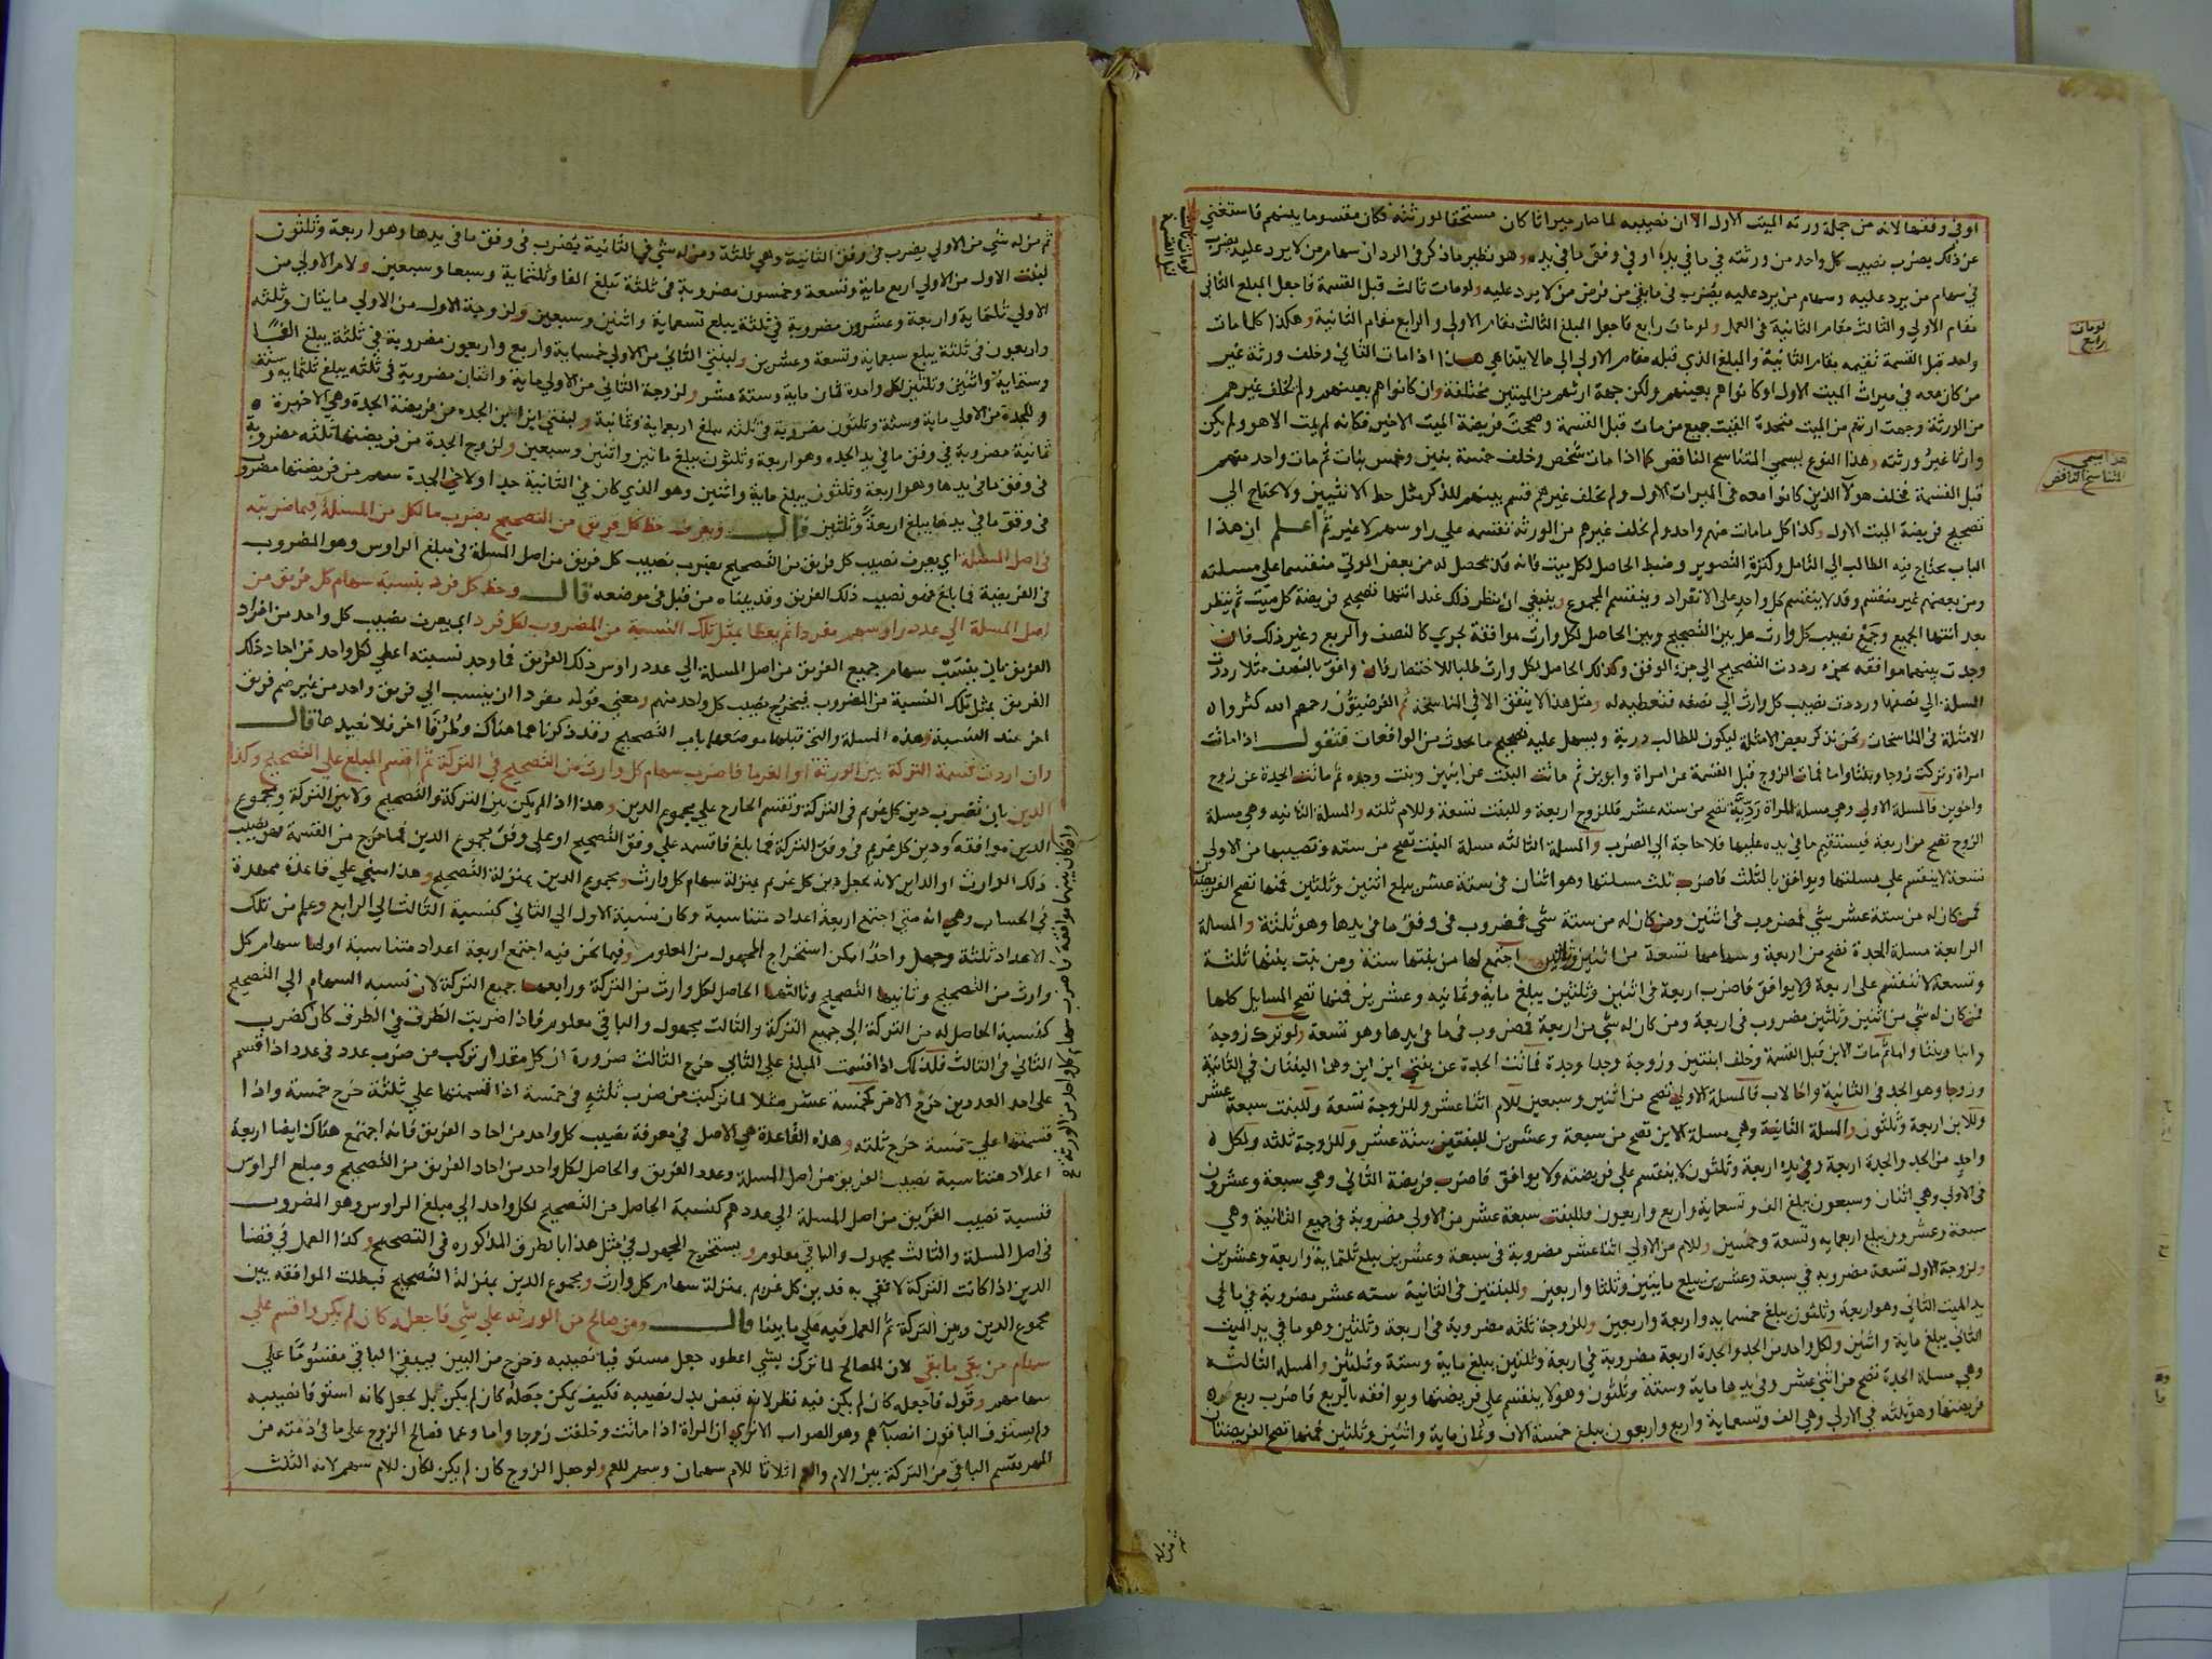 او في وفقها لانه من جملة ورثه الميت الاول الا ان نصيبه لما صار ميراثا كان مستحقا لورثته فكان مقسوما بينهم فاستغني
عن ذلك بضرب نصيب كل واحد من ورثته في ما في يده او في وفق ما في يده وهو نظير ما ذكر في الرد ان سهام من لا يرد عليه يضرب
في سهام من يرد عليه وسهام من يرد عليه يضرب في ما بقي من فرض من لا يرد عليه ولو مات ثالث قبل القسمة فاجعل المبلغ الثاني
مقام الاولي والثالث مقام الثانية في العمل ولو مات رابع فاجعل المبلغ الثالث مقام الاولي والرابع مقام الثانية وهكذا كلما مات
واحد قبل القسمة تقيمه مقام الثانية والمبلغ الذي قبله مقام الاولي الي ما لا يتناهي هذا اذا مات الثاني وخلف ورثة غير
من كان معه في ميراث الميت الاول او كانوا هم بعينهم ولكن جهة ارثهم من الميتين مختلفة وان كانوا هم بعينهم ولم يخلف غيرهم
من الورثة وجهت ارثهم من الميت متحدة الغيت جميع من مات قبل القسمة وصححت فريضة الميت الاخير فكانه لم يمت الا هو ولم يكن
وارثا غير ورثته وهذا النوع يسمي المتناسخ الناقص كما اذا مات شخص وخلف خمسة بنين وخمس بنات ثم مات واحد منهم
قبل القسمة فخلف هولا الذين كانوا معه في الميراث الاول ولم يخلف غيرهم قسم بينهم للذكر مثل حظ الانثيين ولا يحتاج الي
تصحيح فريضة الميت الاول وكذا كل ما مات منهم واحد ولم يخلف غيرهم من الورثة تقسمه علي راوسهم لا غير ثم اعلم ان هذا
الباب يحتاج فيه الطالب الي التامل وكثرة التصوير وضبط الحاصل لكل ميت فانه قد يحصل له من بعض الموتي منقسما علي مسلته
ومن بعضهم غير منقسم وقد لا ينقسم كل واحد علي الانفراد وينقسم المجموع وينبغي ان ينظر ذلك عند انتها تصحيح فريضة كل ميت ثم ينظر
بعد انتها الجميع وجمع نصيب كل وارث هل بين التصحيح وبين الحاصل لكل وارث موافقة بجزي كالنصف والربع وغير ذلك فان
وجدت بينهما موافقه بجزء رددت التصحيح الي جزء الوفق وكذلك الحاصل لكل وارث طلبا للاختصار فان وافق بالنصف مثلا رددت
المسلة الي نصفها ورددت نصيب كل وارث الي نصفه فتعطيه له ومثل هذا لا يتفق الا في المناسخة ثم الفرضيون رحمهم الله كثروا
الامثلة في المناسخات ونحن نذكر بعض الامثلة ليكون للطالب دربة ويسهل عليه تصحيح ما يحدث من الواقعات فنقول اذا ماتت
امراة وتركت زوجا وبنتا واما فمات الزوج قبل القسمة عن امراة وابوين ثم ماتت البنت عن ابنين وبنت وجده ثم ماتت الجدة عن زوج
واخوين فالمسلة الاولي وهي مسلة المراة ردية تصح من سته عشر فللزوج اربعة وللبنت تسعة وللام ثلثه والمسلة الثانيه وهي مسلة
الزوج تصح من اربعة فيستقيم ما في يده عليها فلا حاجة الي الضرب والمسلة الثالثه مسلة البنت تصح من سته ونصيبها من الاولي
تسعة لا ينقسم علي مسلتها ويوافق بالثلث فاضرب ثلث مسلتها وهو اثنان في ستة عشر يبلغ اثنين وثلثين فمنها تصح الفريضتان
فمن كان له من ستة عشر شي فمضروب في اثنين ومن كان له من ستة شي فمضروب في وفق ما في يدها وهو ثلثة والمسالة
الرابعة مسلة الجدة تصح من اربعة وسهامها تسعة من اثنين وثلثين اجتمع لها من بنتها ستة ومن بنت بنتها ثلثة
وتسعة لا تنقسم علي اربعة ولا يوافق فاضرب اربعة في اثنين وثلثين يبلغ ماية وثمانيه وعشرين فمنها تصح المسايل كلها
فمن كان له شي من اثنين وثلثين مضروب في اربعة ومن كان له شي من اربعة فمضروب في ما في يدها وهو تسعة ولو ترك زوجة
وابنا وبنتا واما ثم مات الابن قبل القسمة وخلف ابنتين وزوجة وجدا وجدة فماتت الجدة عن بنتي ابن ابن وهما البنتان في الثانية
وزوجا وهو الجد في الثانية واخا لاب فالمسلة الاولي تصح من اثنين وسبعين للام اثنا عشر وللزوجة تسعة وللبنت سبعة عشر
وللابن اربعة وثلثون والمسلة الثانية وهي مسلة الابن تصح من سبعة وعشرين للبنتين ستة عشر وللزوجة ثلثه ولكل
واحد من الجد والجدة اربعة وفي يده اربعة وثلثون لا ينقسم علي فريضته ولا يوافق فاضرب فريضة الثاني وهي سبعة وعشرون
في الاولي وهي اثنان وسبعون يبلغ الف وتسعماية واربع واربعون وللبنت سبعة عشر من الاولي مضروبة في جميع الثانية وهي
سبعة وعشرون يبلغ اربعمايه وتسعة وخمسين وللام من الاولي اثنا عشر مضروبة في سبعة وعشرين يبلغ ثلثماية واربعة وعشرين
ولزوجة الاول تسعة مضروبه في سبعة وعشرين يبلغ مايتين وثلثا واربعين وللبنتين في الثانية سته عشر مضروبة في ما في
يد الميت الثاني وهو اربعة وثلثون يبلغ خمسمايه واربعة واربعين وللزوجة ثلثه مضروبة في اربعة وثلثين وهو ما في يد الميت
الثاني يبلغ ماية واثنين ولكل واحد من الجد والجدة اربعة مضروبة في اربعة وثلثين يبلغ ماية وستة وثلثين والمسله الثالثه
وهي مسلة الجدة تصح من اثني عشر وفي يدها ماية وستة وثلثون وهو لا ينقسم علي فريضتها ويوافقه بالربع فاضرب ربع
فريضتها وهو ثلثه في الاولي وهي الف وتسعماية واربع واربعون يبلغ خمسة الاف وثمان ماية واثنين وثلثين فمنها تصح الفريضتان
لو مات رابع
هذا يسمي المتناسخ الناقص
ثم من له
ثم من له شي من الاولي يضرب في وفق الثانية وهي ثلثة ومن له شي في الثانية يضرب في وفق ما في يدها وهو اربعة وثلثون
لبنت الاول من الاولي اربع ماية وتسعة وخمسون مضروبة في ثلثة تبلغ الفا وثلثماية وسبعا وسبعين ولام الاولي من
الاولي ثلثماية واربعة وعشرون مضروبة في ثلثة يبلغ تسعماية واثنين وسبعين ولزوجة الاول من الاولي مايتان وثلثه
واربعون في ثلثة يبلغ سبعماية وتسعة وعشرين ولبنتي الثاني من الاولي خمسماية واربع واربعون مضروبة في ثلثة يبلغ الفا
وستماية واثنين وثلثين لكل واحدة ثمان ماية وستة عشر ولزوجة الثاني من الاولي ماية واثنان مضروبة في ثلثه يبلغ ثلثمايه وستة
وللجدة من الاولي ماية وستة وثلثون مضروبة في ثلثه يبلغ اربعماية وثمانية ولبنتي ابن ابن الجده من فريضة الجدة وهي الاخيرة
ثمانية مضروبة في وفق ما في يد الجده وهو اربعة وثلثون يبلغ ماتين واثنين وسبعين ولزوج الجدة من فريضتها ثلثه مضروبة
في وفق ما في يدها وهو اربعة وثلثون يبلغ ماية واثنين وهو الذي كان في الثانية جدا ولاخي الجدة سهم من فريضتها مضروب
في وفق ما في يدها يبلغ اربعة وثلثين قال ويعرف حظ كل فريق من التصحيح بضرب ما لكل من المسلة فيما ضربته
في اصل المسلة اي يعرف نصيب كل فريق من التصحيح بضرب نصيب كل فريق من اصل المسلة في مبلغ الراوس وهو المضروب
في الفريضة فما بلغ فهو نصيب ذلك الفريق وقد بيناه من قبل في موضعه قال وحظ كل فرد بنسبة سهام كل فريق من
اصل المسلة الي عدد راوسهم مفردا ثم يعطا بمثل تلك النسبة من المضروب لكل فرد اي يعرف نصيب كل واحد من افراد
الفريق بان ينسب سهام جميع الفريق من اصل المسلة الي عدد راوس ذلك الفريق فما وجد نسبته اعطي لكل واحد من احاد ذلك
الفريق بمثل تلك النسبة من المضروب فيخرج نصيب كل واحد منهم ومعني قوله مفردا ان ينسب الي فريق واحد من غير ضم فريق
اخر عند النسبة وهذه المسلة والتي قبلها موضعها باب التصحيح وقد ذكرناهما هناك وطرقا اخر فلا نعيدها قال
وان اردت قسمة التركة بين الورثة او الغرما فاضرب سهام كل وارث من التصحيح في التركة ثم اقسم المبلغ علي التصحيح وكذا
الدين بان تضرب دين كل غريم في التركة وتقسم الخارج علي مجموع الدين وهذا اذا لم يكن بين التركة والتصحيح ولا بين التركة ومجموع
الدين موافقة ودين كل غريم في وفق التركة فما بلغ فاقسمه علي وفق التصحيح او علي وفق مجموع الدين فما خرج من القسمة فهو نصيب
ذلك الوارث او الداين لانه يجعل دين كل غريم بمنزلة سهام كل وارث ومجموع الدين بمنزلة التصحيح وهذا مبني علي قاعدة ممهدة
في الحساب وهي انه متي اجتمع اربعة اعداد متناسبة وكان نسبة الاول الي الثاني كنسبة الثالث الي الرابع وعلم من تلك
الاعداد ثلثة وجهل واحد امكن استخراج المجهول من المعلوم وفيما نحن فيه اجتمع اربعة اعداد متناسبة اولها سهام كل
وارث من التصحيح وثانيها التصحيح وثالثها الحاصل لكل وارث من التركة ورابعها جميع التركة لان نسبه السهام الي التصحيح
كنسبة الحاصل له من التركة الي جميع التركة والثالث مجهول والباقي معلوم فاذا ضربت الطرف في الطرف كان كضرب
الثاني في الثالث فكذلك اذا قسمت المبلغ علي الثاني خرج الثالث ضرورة ان كل مقدار تركب من ضرب عدد في عدد اذا قسم
علي احد العددين خرج الاخر كخمسة عشر مثلا لما تركبت من ضرب ثلثه في خمسة اذا قسمتها علي ثلثة خرج خمسة واذا
قسمتها علي خمسة خرج ثلثه وهذه القاعدة هي الاصل في معرفة نصيب كل واحد من احاد الفريق فانه اجتمع هناك ايضا اربعة
اعداد متناسبة نصيب الفريق من اصل المسلة وعدد الفريق والحاصل لكل واحد من احاد الفريق من التصحيح ومبلغ الراوس
فنسبة نصيب الفريق من اصل المسلة الي عددهم كنسبة الحاصل من التصحيح لكل واحد الي مبلغ الراوس وهو المضروب
في اصل المسلة والثالث مجهول والباقي معلوم ويستخرج المجهول في مثل هذا بالطرق المذكوره في التصحيح وكذا العمل في قضا
الدين اذا كانت التركة لا تفي به فدين كل غريم بمنزلة سهام كل وارث ومجموع الدين بمنزلة التصحيح فيطلب الموافقه بين
مجموع الدين وبين التركة ثم العمل فيه علي ما بينا قال ومن صالح من الورثه علي شي فاجعله كان لم يكن واقسم علي
سهام من بقي ما بقي لان المصالح لما ترك بشي اعطوه جعل مستوفيا نصيبه وخرج من البين فيبقي الباقي مقسوما علي
سهامهم وقوله فاجعله كان لم يكن فيه نظر لانه قبض بدل نصيبه فكيف يمكن جعله كان لم يكن بل يجعل كانه استوفا نصيبه
ولم يستوف الباقون انصباهم وهو الصواب الا تري ان المراة اذا ماتت وخلفت زوجا واما وعما فصالح الزوج علي ما في ذمته من
المهر يقسم الباقي من التركة بين الام والعم اثلاثا للام سهمان وسهم للعم ولو جعل الزوج كان لم يكن لكان للام سهم لانه الثلث
وان كان بينهما موافقة فاضرب سهام كل واحد من الورثة